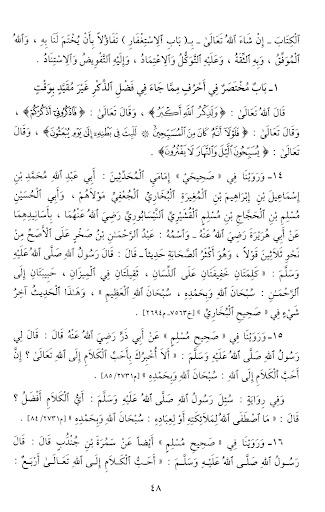 ٱلْكِتَابَ - إِنْ شَاءَ ٱللهُ تَعَالَىٰ - بِـ( بَابِ ٱلِٱسْتِغْفَارِ ) تَفَاؤُلاً بِأَنْ يُخْتَمَ لَنَا بِهِ ، وَٱللهُ
ٱلْمُوَفِّقُ ، وَبِهِ ٱلثِّقَةُ ، وَعَلَيْهِ ٱلتَّوَكُّلُ وَٱلِٱعْتِمَادُ ، وَإِلَيْهِ ٱلتَّفْوِيضُ وَٱلِٱسْتِنَادُ .
١ - بَابٌ مُخْتَصَرٌ فِي أَحْرُفٍ مِمَّا جَاءَ فِي فَضْلِ ٱلذِّكْرِ غَيْرَ مُقَيَّدٍ بِوَقْتٍ
قَالَ ٱللهُ تَعَالَىٰ : ﴿ وَلَذِكْرُ ٱللَّهِ أَكْبَرُ ﴾ ، وَقَالَ تَعَالَىٰ : ﴿ فَٱذْكُرُونِيٓ أَذْكُرْكُمْ ﴾ ،
وَقَالَ تَعَالَىٰ : ﴿ فَلَوْلَآ أَنَّهُۥ كَانَ مِنَ ٱلْمُسَبِّحِينَ ۞ لَلَبِثَ فِي بَطْنِهِۦٓ إِلَىٰ يَوْمِ يُبْعَثُونَ ﴾ ، وَقَالَ
تَعَالَىٰ : ﴿ يُسَبِّحُونَ ٱلَّيْلَ وَٱلنَّهَارَ لَا يَفْتُرُونَ ﴾ .
١٤ - وَرَوَيْنَا فِي « صَحِيحَيْ » إِمَامَيِ ٱلْمُحَدِّثِينَ : أَبِي عَبْدِ ٱللهِ مُحَمَّدِ بْنِ
إِسْمَاعِيلَ بْنِ إِبْرَاهِيمَ بْنِ ٱلْمُغِيرَةِ ٱلْبُخَارِيِّ ٱلْجُعْفِيِّ مَوْلَاهُمْ ، وَأَبِي ٱلْحُسَيْنِ
مُسْلِمِ بْنِ ٱلْحَجَّاجِ بْنِ مُسْلِمٍ ٱلْقُشَيْرِيِّ ٱلنَّيْسَابُورِيِّ رَضِيَ ٱللهُ عَنْهُمَا ، بِأَسَانِيدِهِمَا
عَنْ أَبِي هُرَيْرَةَ رَضِيَ ٱللهُ عَنْهُ - وَٱسْمُهُ : عَبْدُ ٱلرَّحْمَٰنِ بْنُ صَخْرٍ عَلَى ٱلْأَصَحِّ مِنْ
نَحْوِ ثَلَاثِينَ قَوْلاً ، وَهُوَ أَكْثَرُ ٱلصَّحَابَةِ حَدِيثاً - قَالَ : قَالَ رَسُولُ ٱللهِ صَلَّى ٱللهُ عَلَيْهِ
وَسَلَّمَ : « كَلِمَتَانِ خَفِيفَتَانِ عَلَى ٱللِّسَانِ ، ثَقِيلَتَانِ فِي ٱلْمِيزَانِ ، حَبِيبَتَانِ إِلَى
ٱلرَّحْمَٰنِ : سُبْحَانَ ٱللهِ وَبِحَمْدِهِ ، سُبْحَانَ ٱللهِ ٱلْعَظِيمِ » ، وَهَٰذَا ٱلْحَدِيثُ آخِرُ
شَيْءٍ فِي « صَحِيحِ ٱلْبُخَارِيِّ » [خ٧٥٦٣-م٢٦٩٤] .
١٥ - وَرَوَيْنَا فِي « صَحِيحِ مُسْلِمٍ » عَنْ أَبِي ذَرٍّ رَضِيَ ٱللهُ عَنْهُ قَالَ : قَالَ لِي
رَسُولُ ٱللهِ صَلَّى ٱللهُ عَلَيْهِ وَسَلَّمَ : « أَلَا أُخْبِرُكَ بِأَحَبِّ ٱلْكَلَامِ إِلَى ٱللهِ تَعَالَىٰ ؟ إِنَّ
أَحَبَّ ٱلْكَلَامِ إِلَى ٱللهِ : سُبْحَانَ ٱللهِ وَبِحَمْدِهِ » [م٢٧٣١/٨٥] .
وَفِي رِوَايَةٍ : سُئِلَ رَسُولُ ٱللهِ صَلَّى ٱللهُ عَلَيْهِ وَسَلَّمَ : أَيُّ ٱلْكَلَامِ أَفْضَلُ ؟
قَالَ : « مَا ٱصْطَفَى ٱللهُ لِمَلَائِكَتِهِ أَوْ لِعِبَادِهِ : سُبْحَانَ ٱللهِ وَبِحَمْدِهِ » [م٢٧٣١/٨٤] .
١٦ - وَرَوَيْنَا فِي « صَحِيحِ مُسْلِمٍ » أَيْضاً عَنْ سَمُرَةَ بْنِ جُنْدُبٍ قَالَ : قَالَ
رَسُولُ ٱللهِ صَلَّى ٱللهُ عَلَيْهِ وَسَلَّمَ : « أَحَبُّ ٱلْكَلَامِ إِلَى ٱللهِ تَعَالَىٰ أَرْبَعٌ :
٤٨